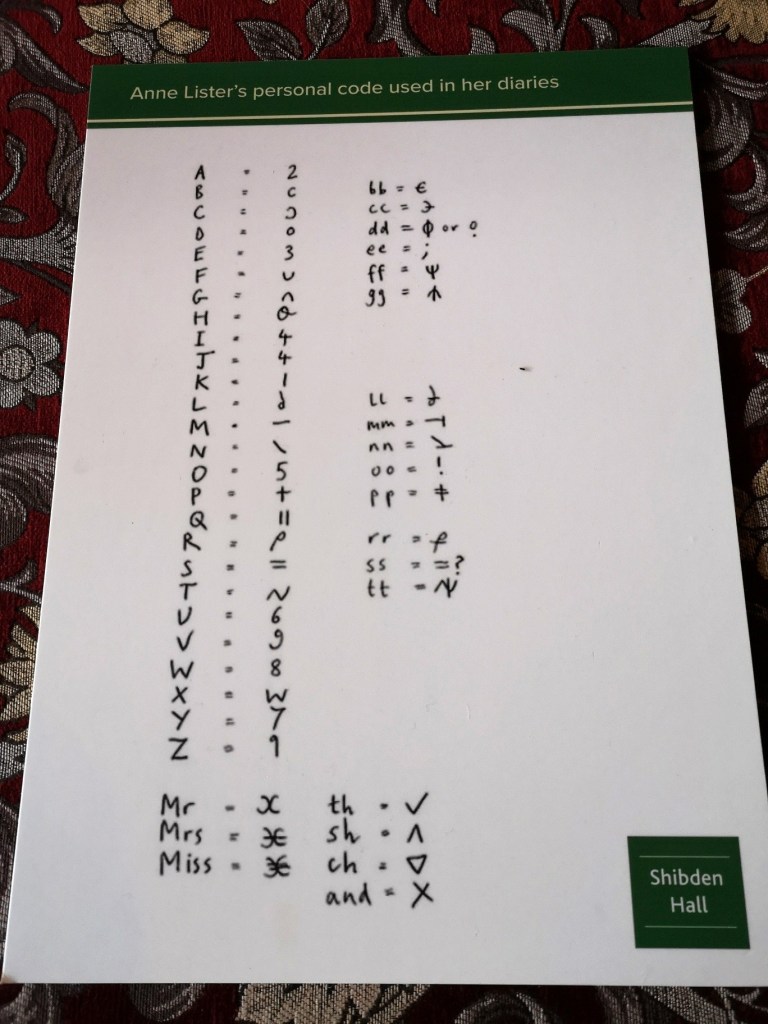 Anne Lister's personal code used in her diaries
A = 2
B = c
C = ɔ
D = o
E = 3
F = ∪
G = ∩
H = Q
I = 4
J = 4
K = /
L = d
M = –
N = \
O = 5
P = +
Q = ||
R = ρ
S = =
T = ~
U = 6
V = 9
W = 8
X = w
Y = 7
Z = 1
bb = €
cc =
dd = ϕ or
ee = ;
ff = Ψ
gg = ↑
ll =
mm =
nn =
oo = !
pp = ‡
rr =
ss = =?
tt =
Mr = x
Mrs = ӿ
Miss =
th = ✓
sh = ∧
ch = ▽
and = X
Shibden
Hall